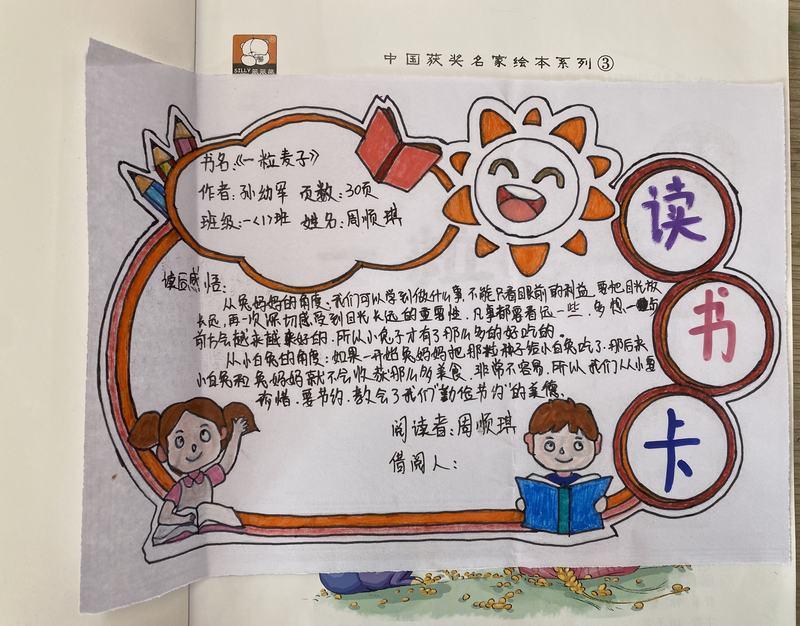 中国获奖名家绘本系列③
SILLY
书名:《一粒麦子》
作者:孙幼军 页数:30页
班级:一〈1〉班 姓名:周顺琪
读书卡
读后感悟:
从兔妈妈的角度:我们可以受到做什么事,不能只看眼前的利益,要把目光放
长远,再一次深切感受到目光长远的重要性,凡事都要看远一些,多想一
越来越来好的,所以小兔子才有了那么多的好吃的。
从小白兔的角度:如果一开始兔妈妈把那粒种子给小白兔吃了,那后来
小白兔和兔妈妈就不会收获那么多美食,非常不容易,所以我们从小要
惜,要节约,教会了我们"勤俭节约"的美德。
阅读者:周顺琪
借阅人: